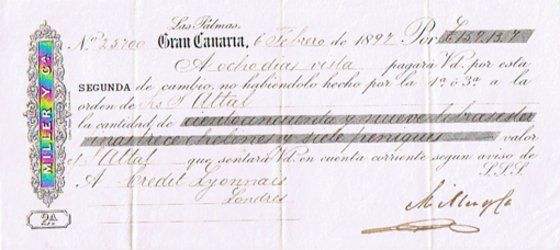 Las Palmas,
Nº 25700 Gran Canaria, 6 Febrero de 1897 Por £ 159.13.7
A ocho días vista pagará Vd. por esta
SEGUNDA de cambio, no habiéndolo hecho por la 1ª ó 3ª a la
orden de
la cantidad de ciento cincuenta y nueve libras ester
linas trece chelines y siete peniques valor
que sentará Vd. en cuenta corriente segun aviso de
A Credit Lyonnais S.S.S.
Londres
Miller y Ca
MILLER Y Cª
2ª